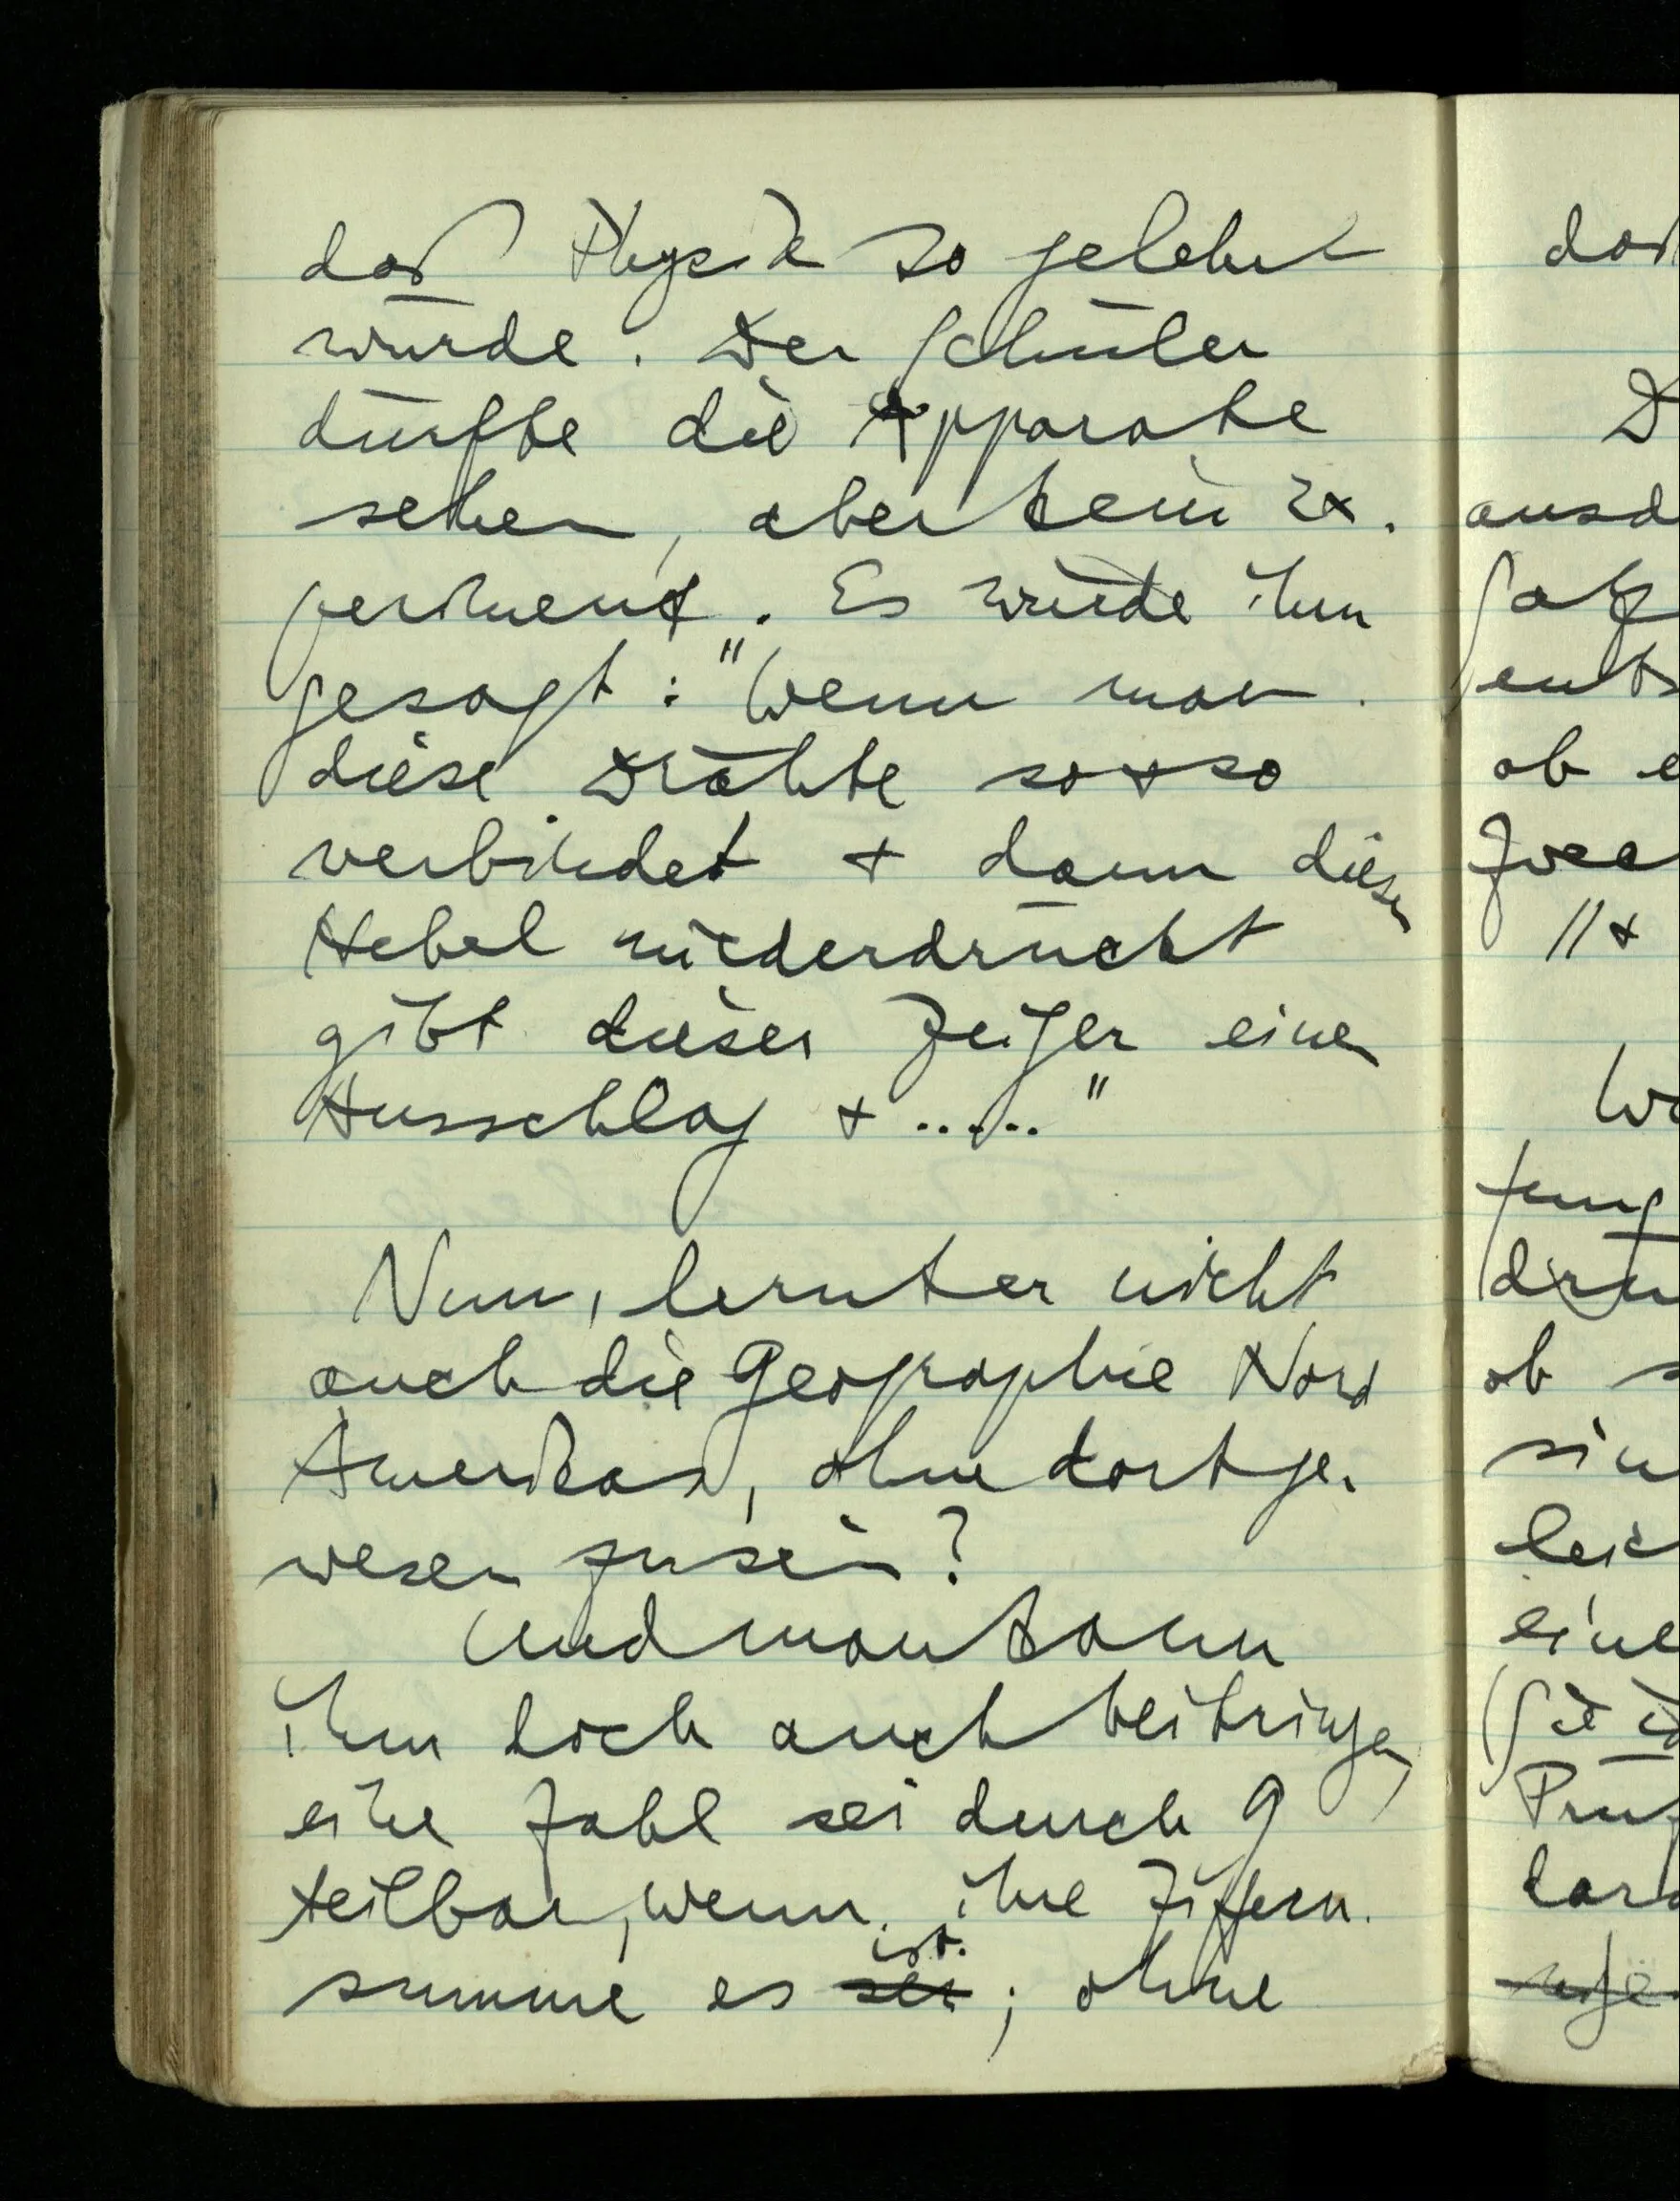 daß Physik so gelehrt
würde. Der Schüler
dürfte die Apparate
sehen, aber kein Ex-
periment. Es würde ihm
gesagt: "Wenn man
diese Drähte so & so
verbindet & dann diesen
Hebel niederdrückt
gibt dieser Zeiger einen
Ausschlag & ....."
Nun, lernt er nicht
auch die Geographie Nord
Amerikas, ohne dort ge-
wesen zu sein?
Und man kann
ihm doch auch beibringen,
eine Zahl sei durch 9
teilbar, wenn ihre Ziffern-
summe es sei ist; ohne